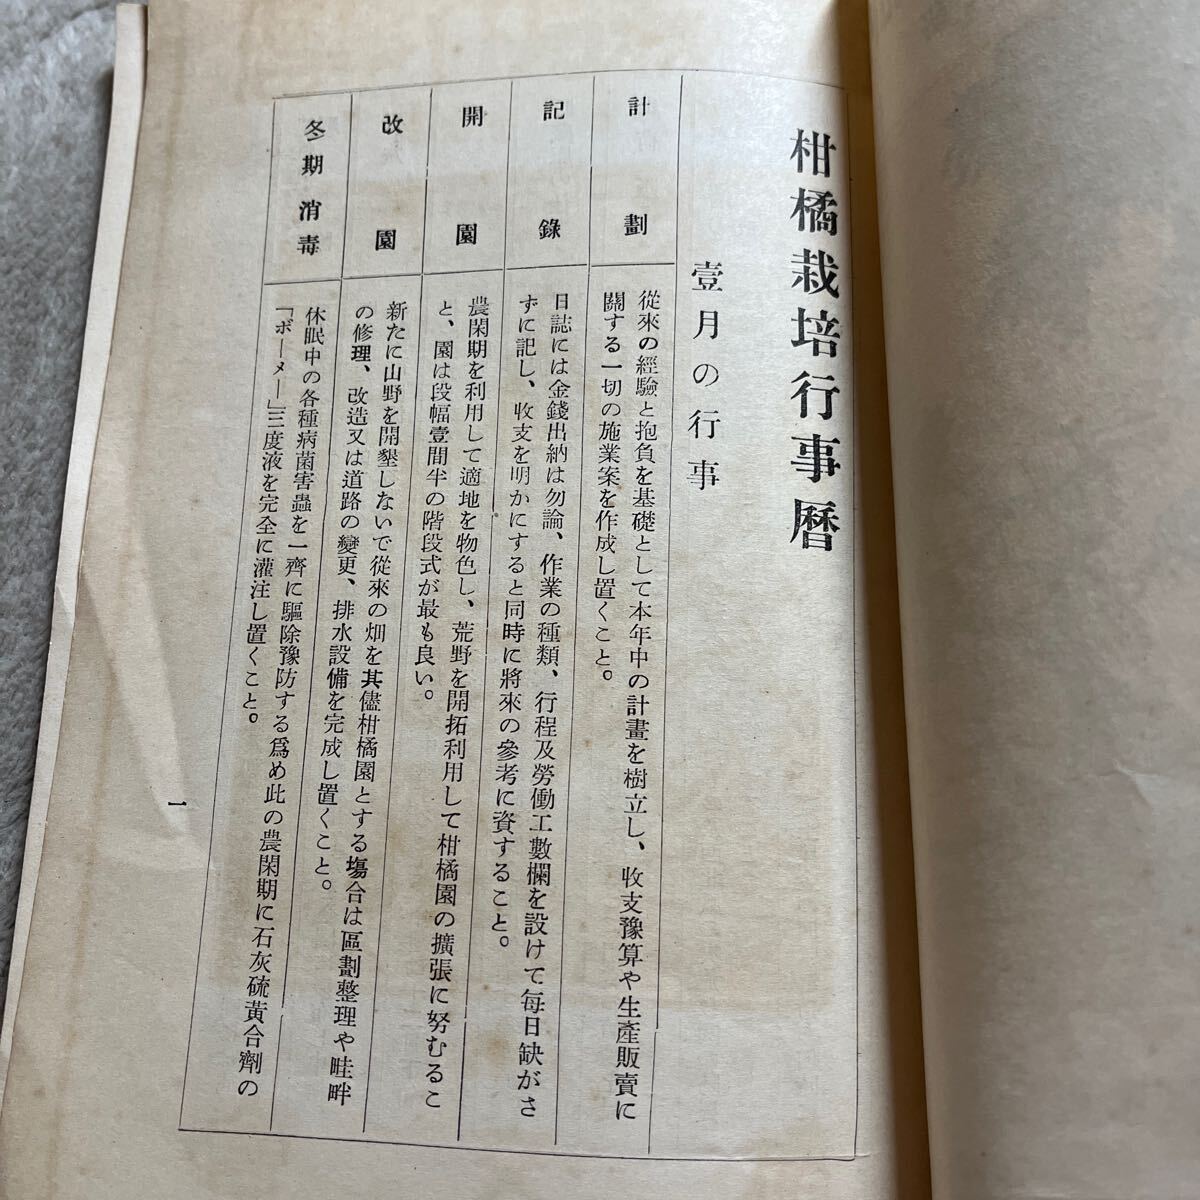 柑橘栽培行事曆
壹月の行事
計劃
從來の經驗と抱負を基礎として本年中の計畫を樹立し、收支豫算や生產販賣に
關する一切の施業案を作成し置くこと。
記錄
日誌には金錢出納は勿論、作業の種類、行程及勞働工數欄を設けて每日缺がさ
ずに記し、收支を明かにすると同時に將來の參考に資すること。
開園
農閑期を利用して適地を物色し、荒野を開拓利用して柑橘園の擴張に努むるこ
と、園は段幅壹間半の階段式が最も良い。
改園
新たに山野を開墾しないで從來の畑を其儘柑橘園とする塲合は區劃整理や畦畔
の修理、改造又は道路の變更、排水設備を完成し置くこと。
冬期消毒
休眠中の各種病菌害蟲を一齊に驅除豫防する爲め此の農閑期に石灰硫黃合劑の
「ボーメー」三度液を完全に灌注し置くこと。
一